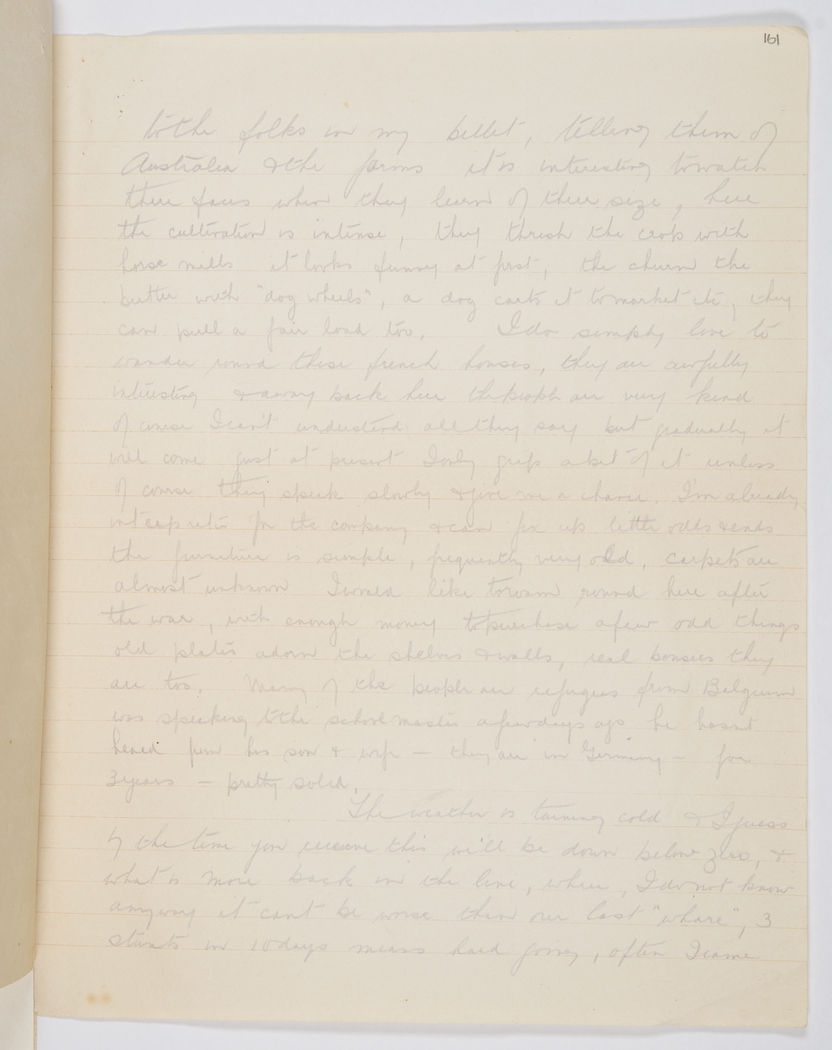 161
to the folks in my billet, telling them of
Australia & the farms it is interesting to watch
their faces when they learn of their size, here
the cultivation is intense, they thresh the crop with
horse mills it looks funny at first, the churn the
butter with "dog wheels", a dog carts it to market etc, they
can pull a fair load too. I do simply love to
wander round these french houses, they are awfully
interesting & away back here the people are very kind
of course I can't understand all they say but gradually it
will come just at present I only grip a bit of it unless
of course they speak slowly & give me a chance. I'm already
interpreter for the company & can fix up little odds & ends
the furniture is simple, frequently very old, carpets are
almost unknown I would like to roam round here after
the war, with enough money to purchase a few odd things
old plates adorn the shelves & walls, real bonsers they
are too. Many of the people are refugees from Belgium
was speaking to the school master a few days ago he hasnt
heard from his son & wife — they are in Germany — for
3 years — pretty solid.
The weather is turning cold & I guess
by the time you receive this will be down below zero, &
what is more back in the line, where, I do not know
anyway it cant be worse than our last "whare", 3
stunts in 10 days means hard going, often I came